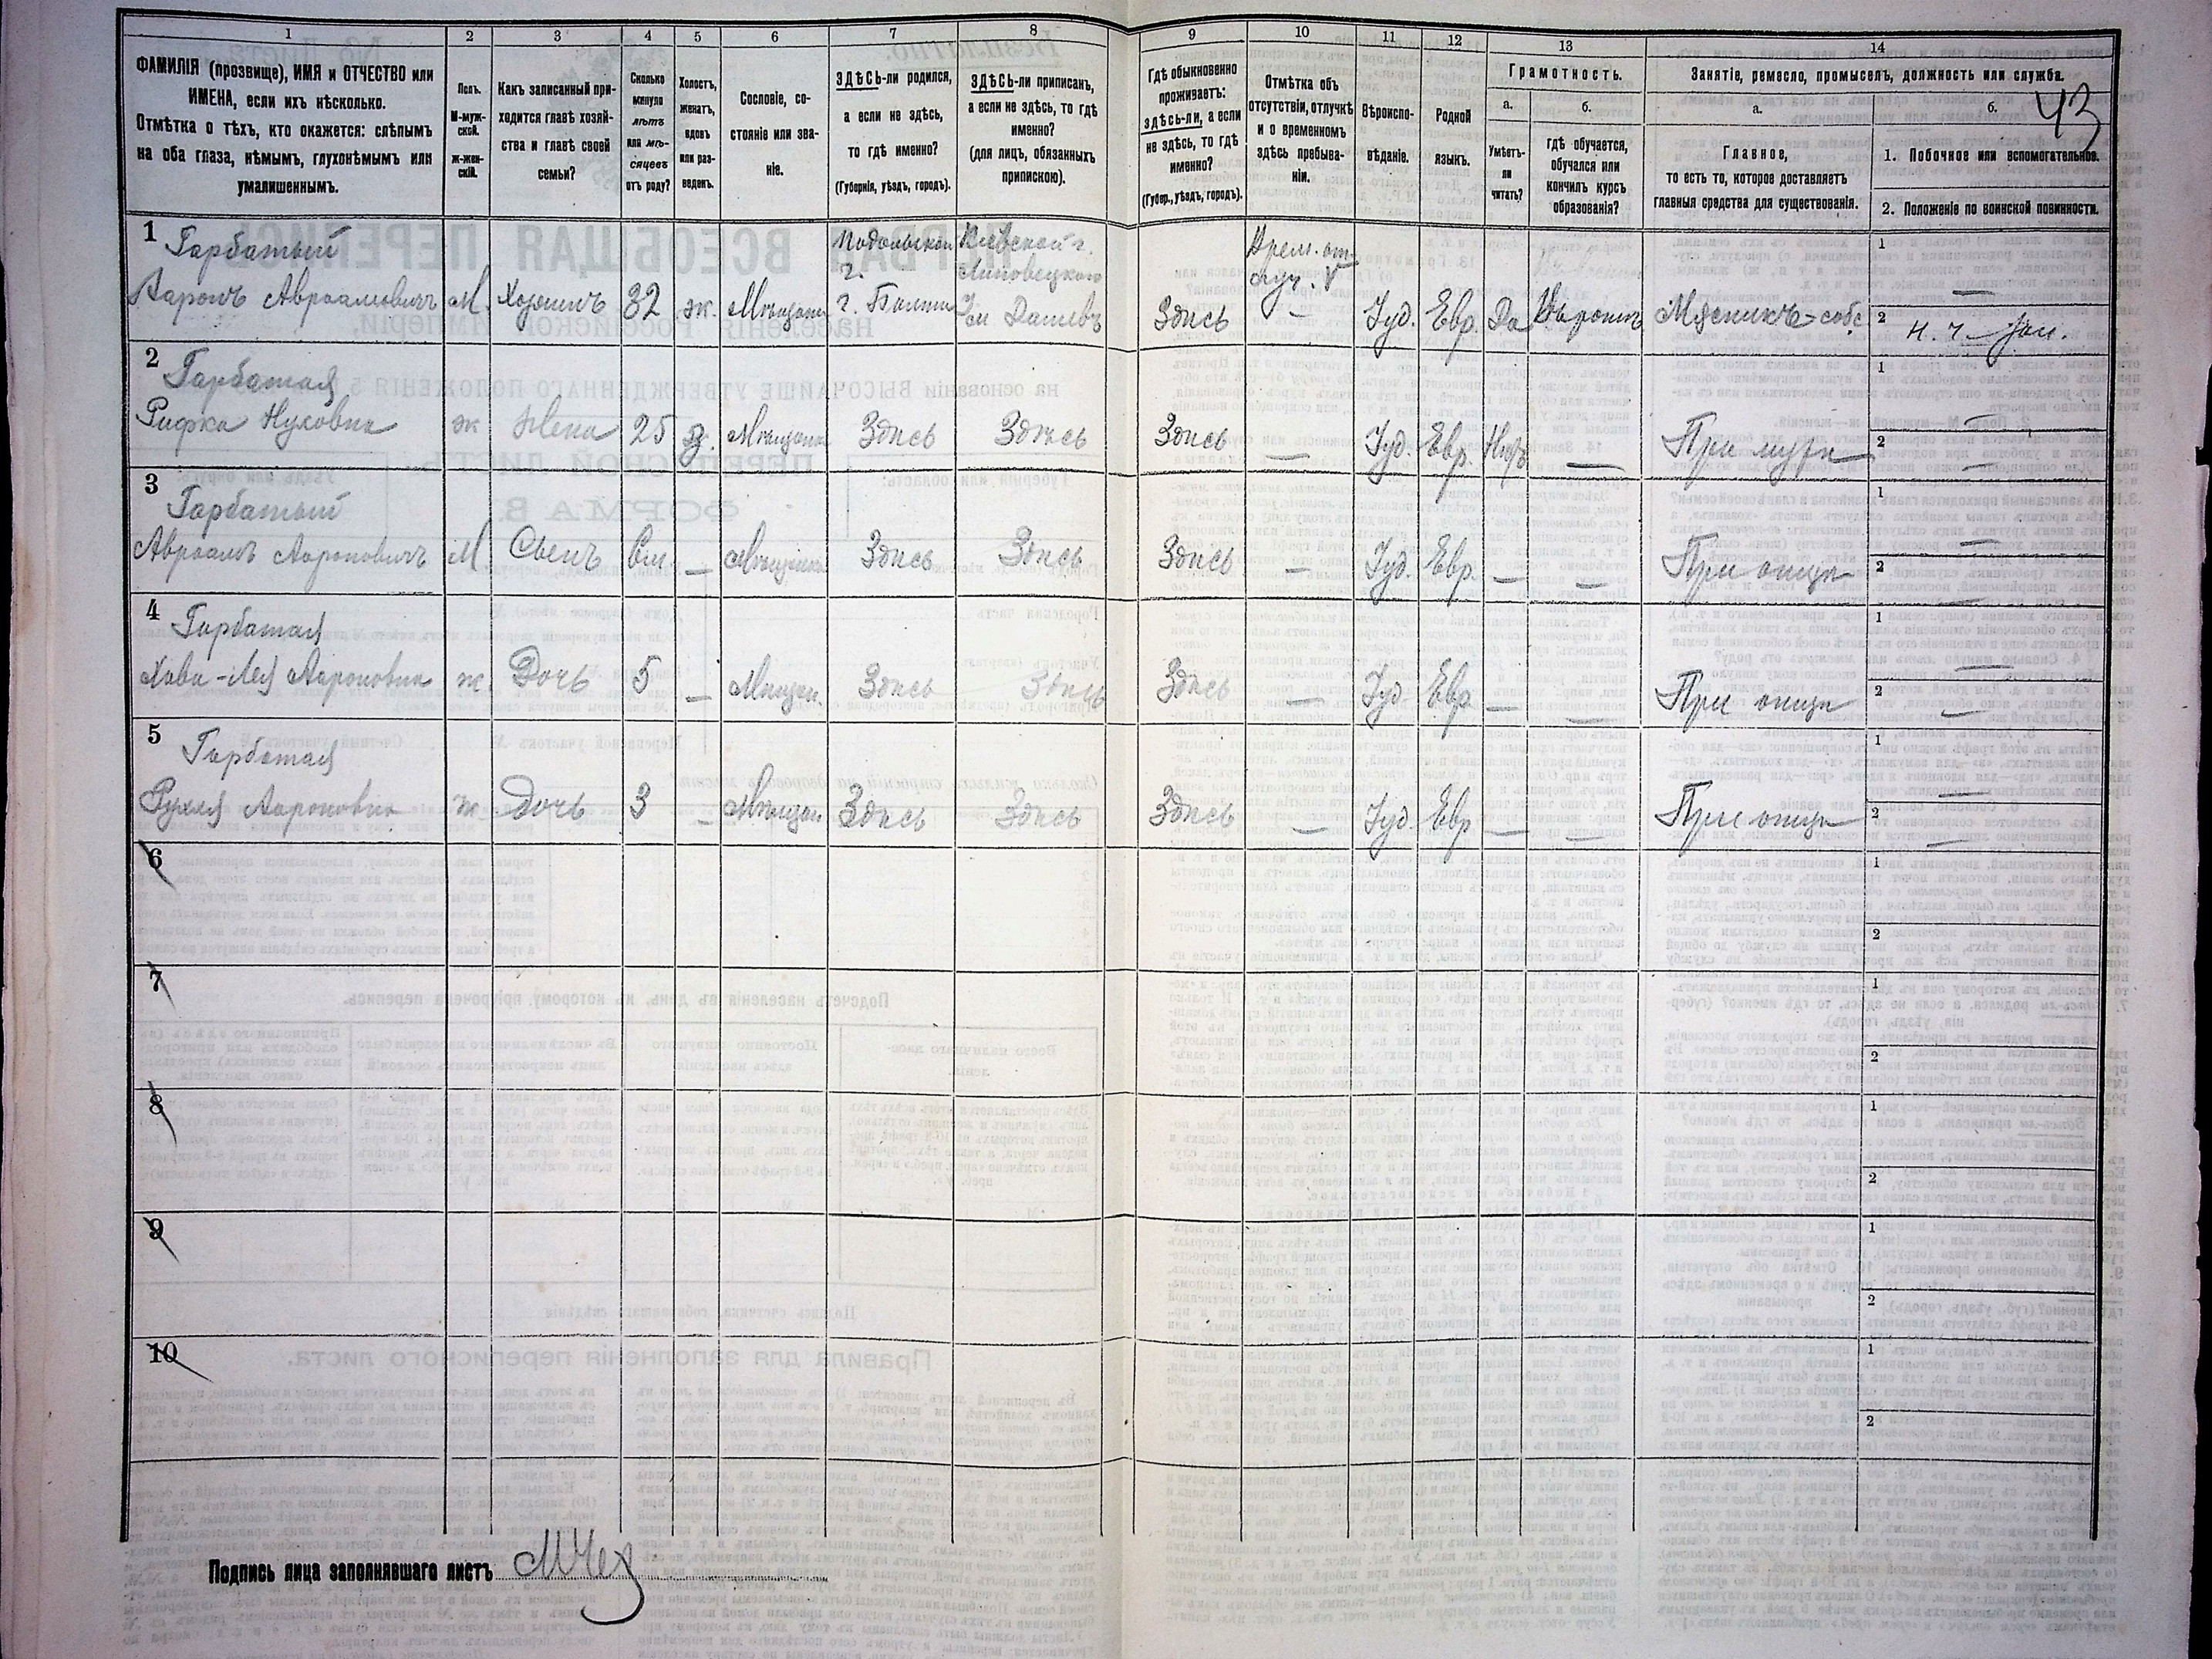 1 2 3 4 5 6 7 8 9 10 11 12 13 14
ФАМИЛІЯ (прозвище), ИМЯ и ОТЧЕСТВО или
ИМЕНА, если ихъ нѣсколько.
Отмѣтка о тѣхъ, кто окажется: слѣпымъ
на оба глаза, нѣмымъ, глухонѣмымъ или
умалишеннымъ.
Полъ.
М-муж-
ской.
ж-жен-
скій.
Какъ записанный при-
ходится главѣ хозяй-
ства и главѣ своей
семьи?
Сколько
минуло
лѣтъ
или мѣ-
сяцевъ
отъ роду?
Холостъ,
женатъ,
вдовъ
или раз-
веденъ.
Сословіе, со-
стояніе или зва-
ніе.
ЗДѢСЬ-ли родился,
а если не здѣсь,
то гдѣ именно?
(Губернія, уѣздъ, городъ).
ЗДѢСЬ-ли приписанъ,
а если не здѣсь, то гдѣ
именно?
(для лицъ, обязанныхъ
припискою).
Гдѣ обыкновенно
проживаетъ:
здѣсь-ли, а если
не здѣсь, то гдѣ
именно?
(Губер., уѣздъ, городъ).
Отмѣтка объ
отсутствіи, отлучкѣ
и о временномъ
здѣсь пребыва-
ніи.
Вѣроиспо-
вѣданіе.
Родной
языкъ.
Грамотность.
а.
Умѣетъ-
ли
читать?
б.
гдѣ обучается,
обучался или
кончилъ курсъ
образованія?
Занятіе, ремесло, промыселъ, должность или служба.
43
а.
Главное,
то есть то, которое доставляетъ
главныя средства для существованія.
б.
1. Побочное или вспомогательное.
2. Положеніе по воинской повинности.
1 Гарбатый
Ааронъ Авраамовичъ М. Хозяинъ 32 ж.
Подольской
г.
г. Балта
Кіевской г.
Липовецкого
Врем. от
луч.
Здѣсь — Іуд. Евр. Да
1 —
2
2 Гарбатая
Рифка Нуховна ж Жена 25 з. Мѣщанка Здѣсь Здѣсь Здѣсь — Іуд. Евр. Нѣтъ — При мужѣ
1 —
2 —
3 Гарбатый
Авраамъ Аароновичъ М Сынъ — Здѣсь Здѣсь Здѣсь — Іуд. Евр. — — При отцѣ
1 —
2 —
4 Гарбатая
Хава-Лея Аароновна ж. Дочь 5 — Мѣщан. Здѣсь Здѣсь Здѣсь — Іуд. Евр. — — При отцѣ
1 —
2 —
5 Гарбатая
Рухля Аароновна ж. Дочь 3 — Мѣщан. Здѣсь Здѣсь Здѣсь — Іуд. Евр — — При отцѣ
1 —
2 —
6
1
2
7
1
2
8
1
2
9
1
2
10
1
2
Подпись лица заполнявшаго листъ